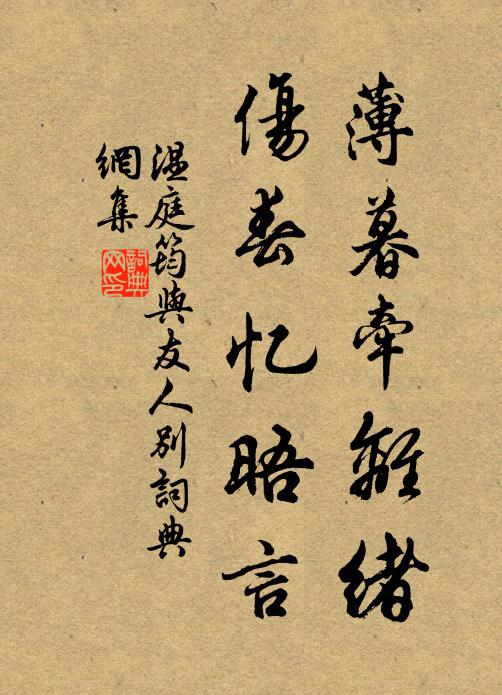 薄暮牽離緒
傷春忆晤言
温庭筠與友人別詞典
網集
詞典網印